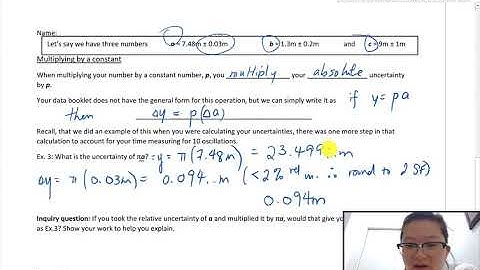 Name:
Let's say we have three numbers a = 7.48m ± 0.03m b = 1.3m ± 0.2m and c = 9m ± 1m
Multiplying by a constant
When multiplying your number by a constant number, p, you multiply your absolute uncertainty
by p.
if y = pa
Your data booklet does not have the general form for this operation, but we can simply write it as
then Δy = p(Δa)
Recall, that we did an example of this when you were calculating your uncertainties, there was one more step in that
calculation to account for your time measuring for 10 oscillations.
Ex. 3: What is the uncertainty of πa? y = π(7.48m) = 23.499...m
Δy = π(0.03m) = 0.094...m (<2% rel un. ∴ round to 2 SF)
0.094m
Inquiry question: If you took the relative uncertainty of a and multiplied it by πa, would that give you
as Ex.3? Show your work to help you explain.